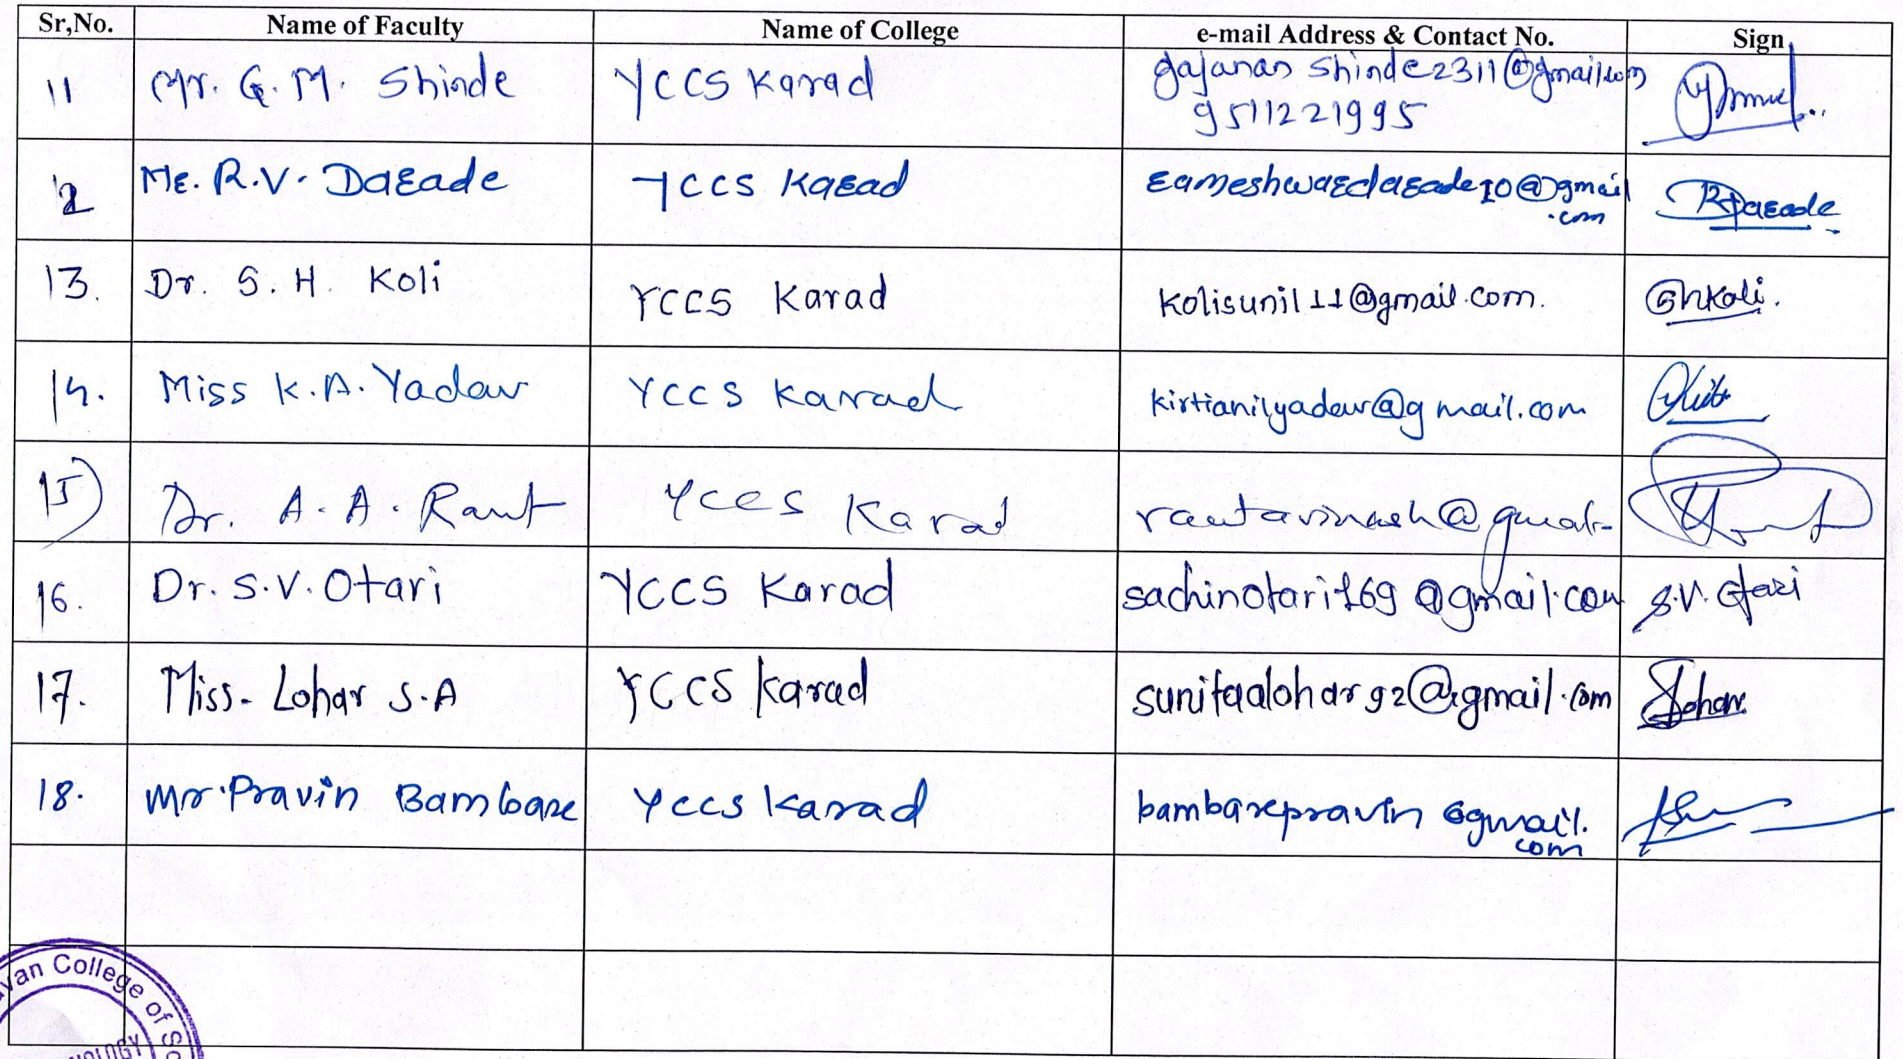 Sr,No. Name of Faculty Name of College e-mail Address & Contact No. Sign
11 Mr. G. M. Shinde YCCS Karad gajananshinde2311@gmail.com
9511221995
12 Mr. R.V. Darade YCCS Karad rameshwardarade10@gmail
.com RDarade
13. Dr. S. H. Koli YCCS Karad kolisunil11@gmail.com. Shkoli.
14. Miss K.A. Yadav YCCS Karad kirtianilyadav@gmail.com
15) Dr. A. A. Raut YCCS Karad rautavinash@gmail-
16. Dr. S.V. Otari YCCS Karad sachinotari169@gmail.com S.V. Otari
17. Miss. Lohar S.A YCCS Karad sunitaalohar92@gmail.com SLohar
18. Mr. Pravin Bambare YCCS Karad bambarepravin@gmail.
com
van College of Sc
NOLOGY